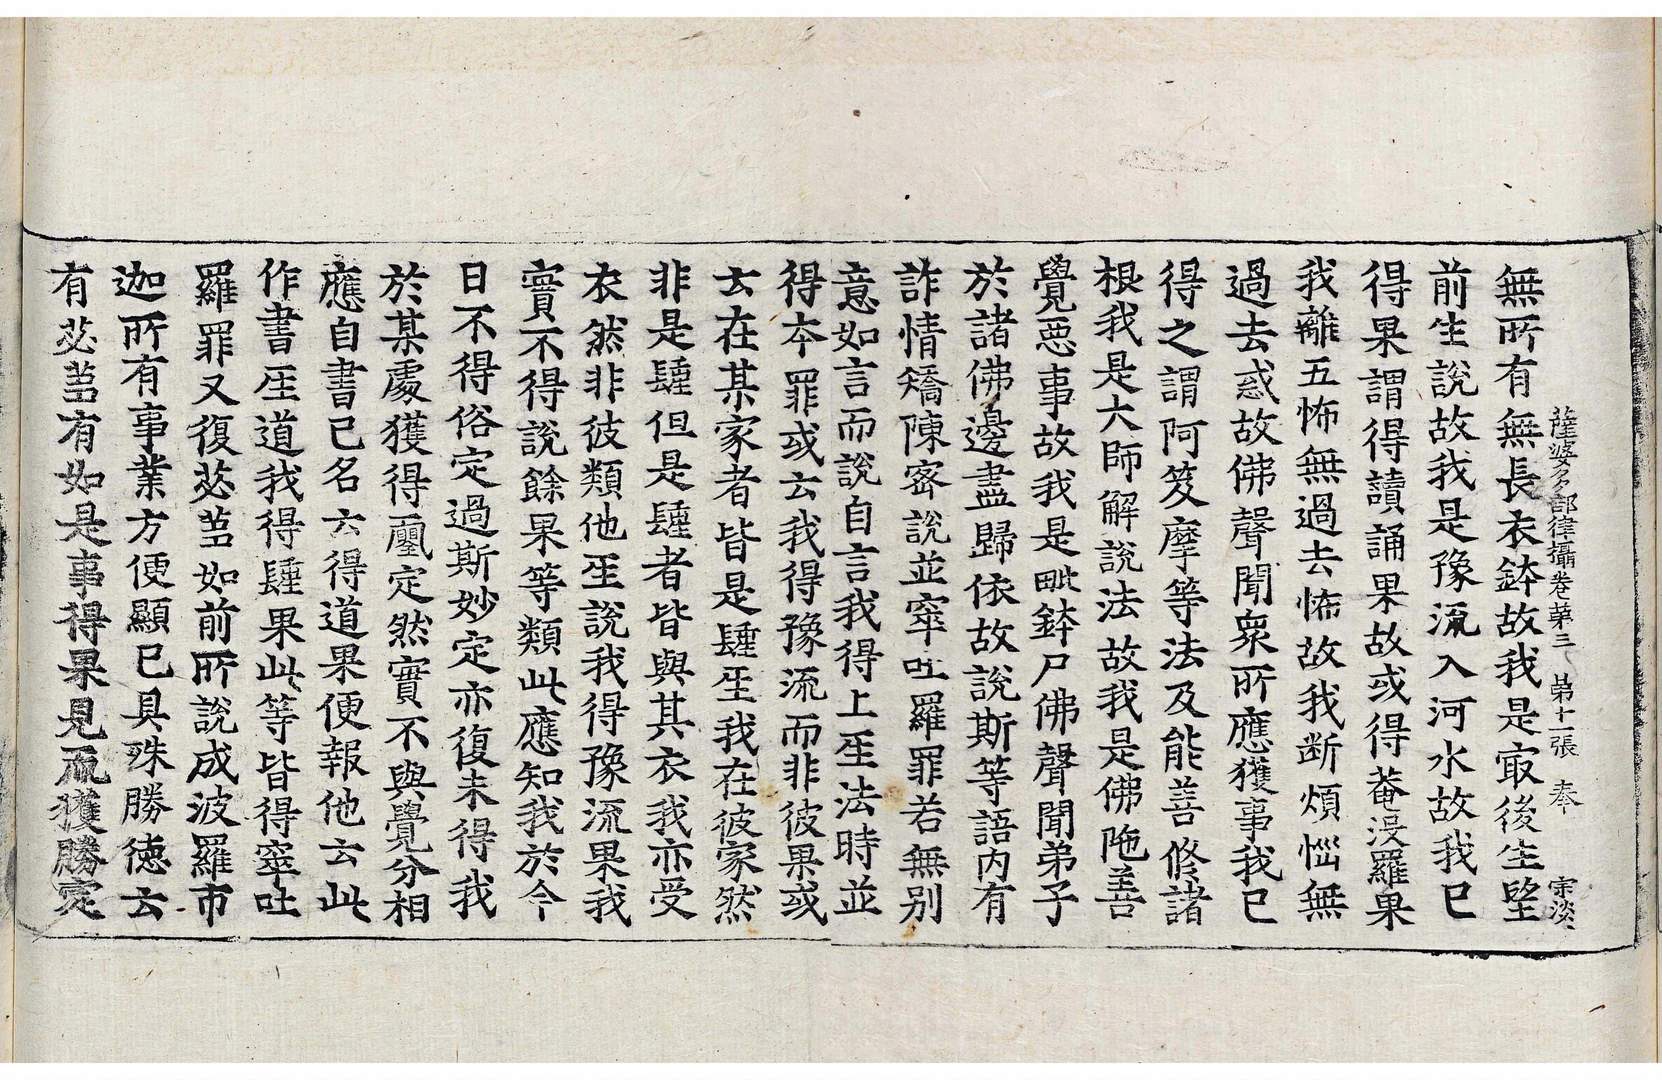 薩婆多部律攝卷苐三　苐十一張　奉　宗淡
無所有無長衣鉢故我是㝡後生堅
前生說故我是豫流入河水故我已
得果謂得讀誦果故或得菴没羅果
我離五怖無過去怖故我断煩惱無
過去惑故佛聲聞衆所應獲事我已
得之謂阿笈摩等法及能善修諸
根我是大師解說法故我是佛陁善
覺惡事故我是毗鉢尸佛聲聞弟子
於諸佛邊盡歸依故說斯等語内有
詐情矯陳密說並窣吐羅罪若無別
意如言而說自言我得上𤯔法時並
得本罪或云我得豫流而非彼果或
云在某家者皆是𨲵𤯔我在彼家然
非是𨲵但是𨲵者皆與其衣我亦受
衣然非彼類他𤯔說我得豫流果我
實不得說餘果等類此應知我於今
日不得俗定過斯妙定亦復未得我
於某處獲得𤫊定然實不與覺分相
應自書己名云得道果便報他云此
作書𤯔道我得𨲵果此等皆得窣吐
羅罪又復苾芻如前所說成波羅市
迦所有事業方便顯已具殊勝德云
有苾芻有如是事得果見𤬪獲勝定